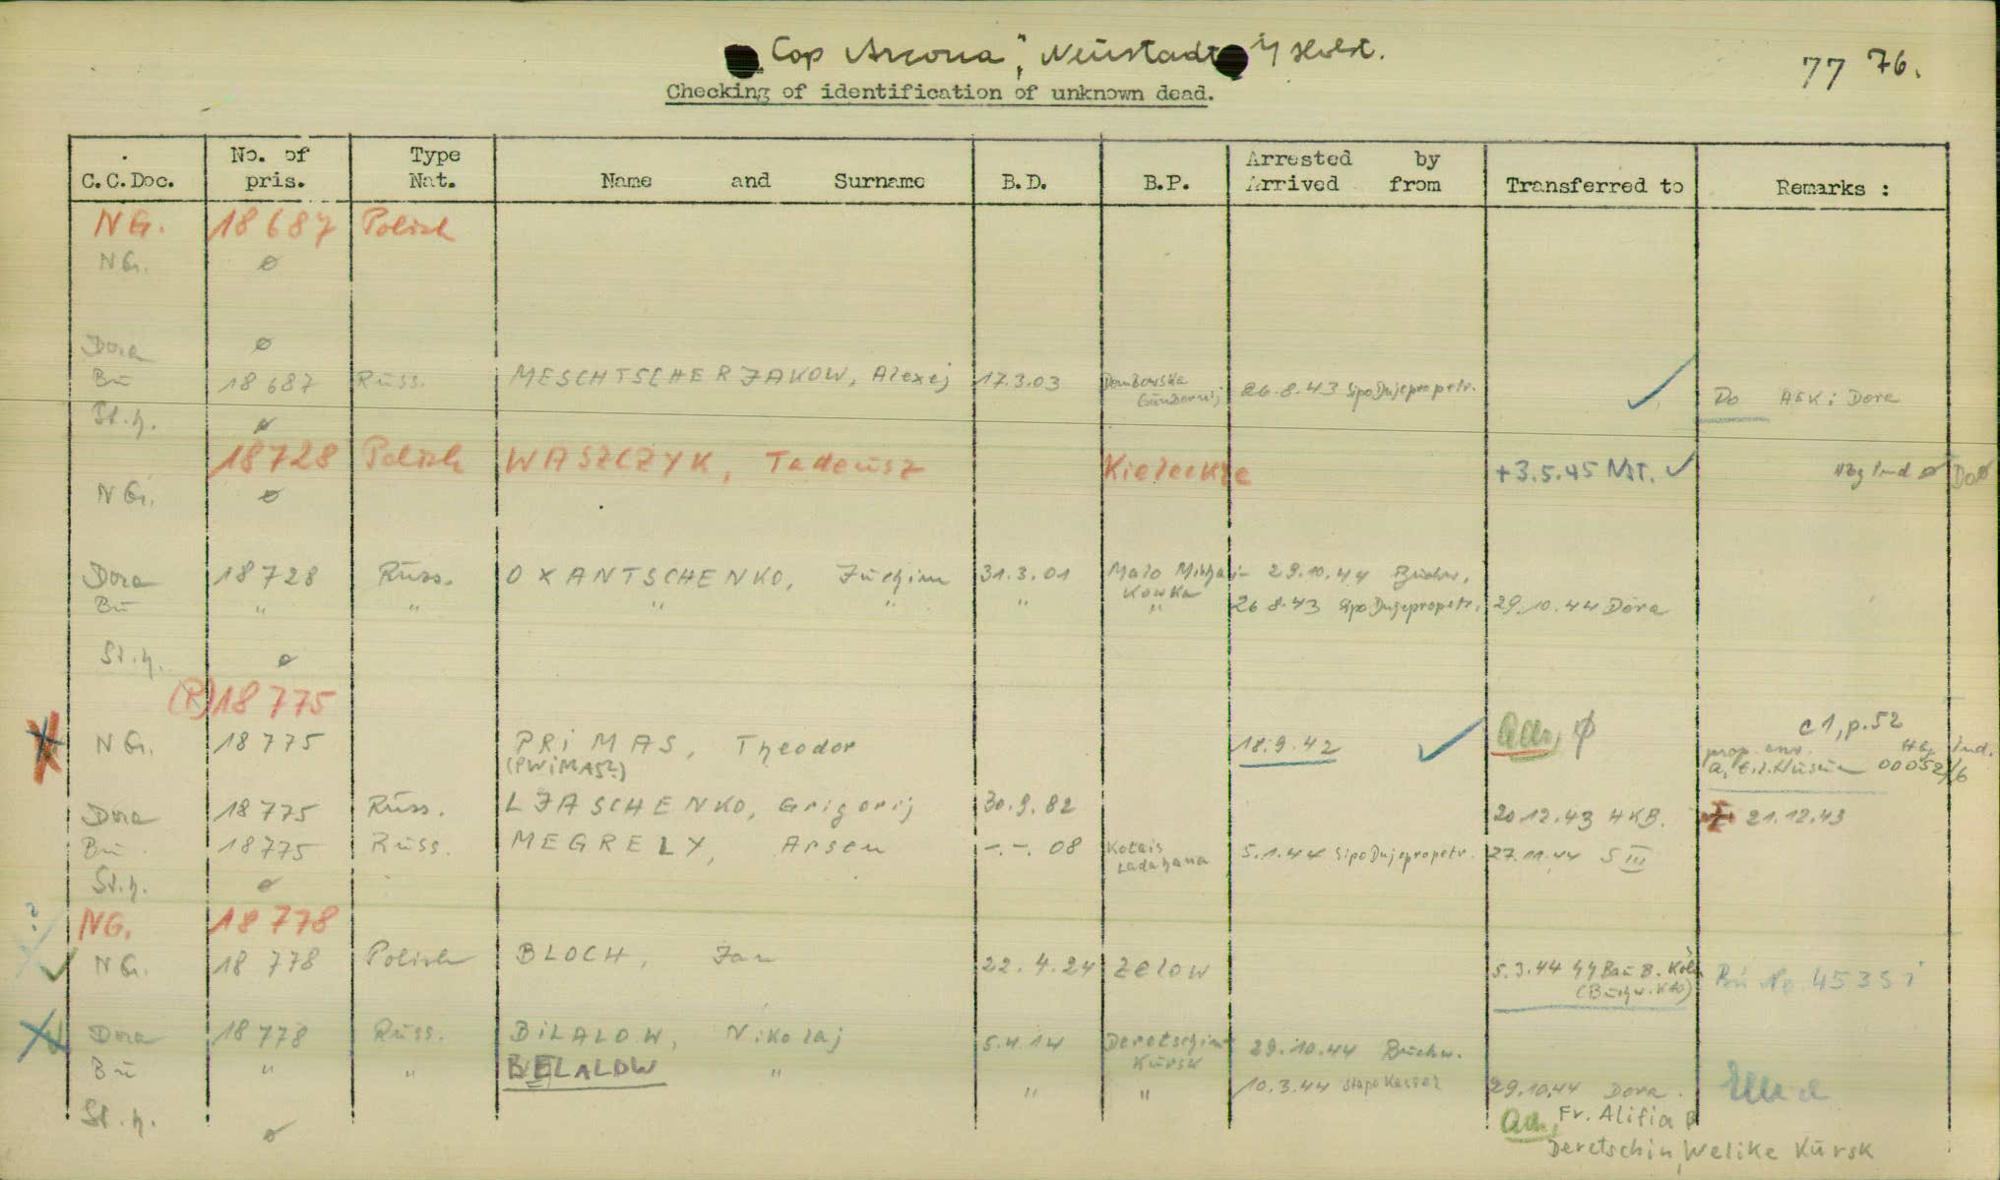 "Cap Arcona", Neustadt i/ Holst.
77 76.
Checking of identification of unknown dead.
C.C.Doc. No. of pris. Type Nat. Name and Surname B.D. B.P. Arrested by Arrived from Transferred to Remarks :
NG. 18687 Polish
NG. ø
Dora ø
Bu 18687 Russ. MESCHTSCHERJAKOW, Alexej 17.3.03 26.8.43 Sipo Dnjepropetr. ✓ Do AEK: Dora
St.h. ø
18728 Polish WASZCZYK, Tadeusz Kieleckie +3.5.45 Nst. ✓ Hbg Ind ø Do ø
NG. ø
Dora 18728 Russ. OXANTSCHENKO, Juchim 31.3.01 Malo Michai- 29.10.44 Buchw.
Bu " " " " " kowka " 26.8.43 Sipo Dnjepropetr. 29.10.44 Dora
St.h. ø
(R) 18775
NG. 18775 PRiMAS, Theodor 18.9.42 ✓ ø c1, p.52
(PWiMAS?) Hbg Ind. 00052/6
Dora 18775 Russ. LJASCHENKO, Grigorij 30.9.82 20.12.43 HKB. + 21.12.43
Bu 18775 Russ. MEGRELY, Arsen -.-.08 Kotais Ladahana 5.1.44 Sipo Dnjepropetr. 27.11.44 S III
St.h. ø
? NG. 18778
✓ NG. 18 778 Polish BLOCH, Jan 22.4.24 Zelow 5.3.44 SS Bau B. Köln Bu No. 45351
(Buchw. Kdo)
Dora 18778 Russ. BiLALOW, Nikolaj 5.4.14 Deretschin- 29.10.44 Buchw.
Kursk
Bu " " BELALOW " " " 10.3.44 Stapo Kassel 29.10.44 Dora.
St.h. ø Fr. Alifia B
Deretschin, Welike Kursk